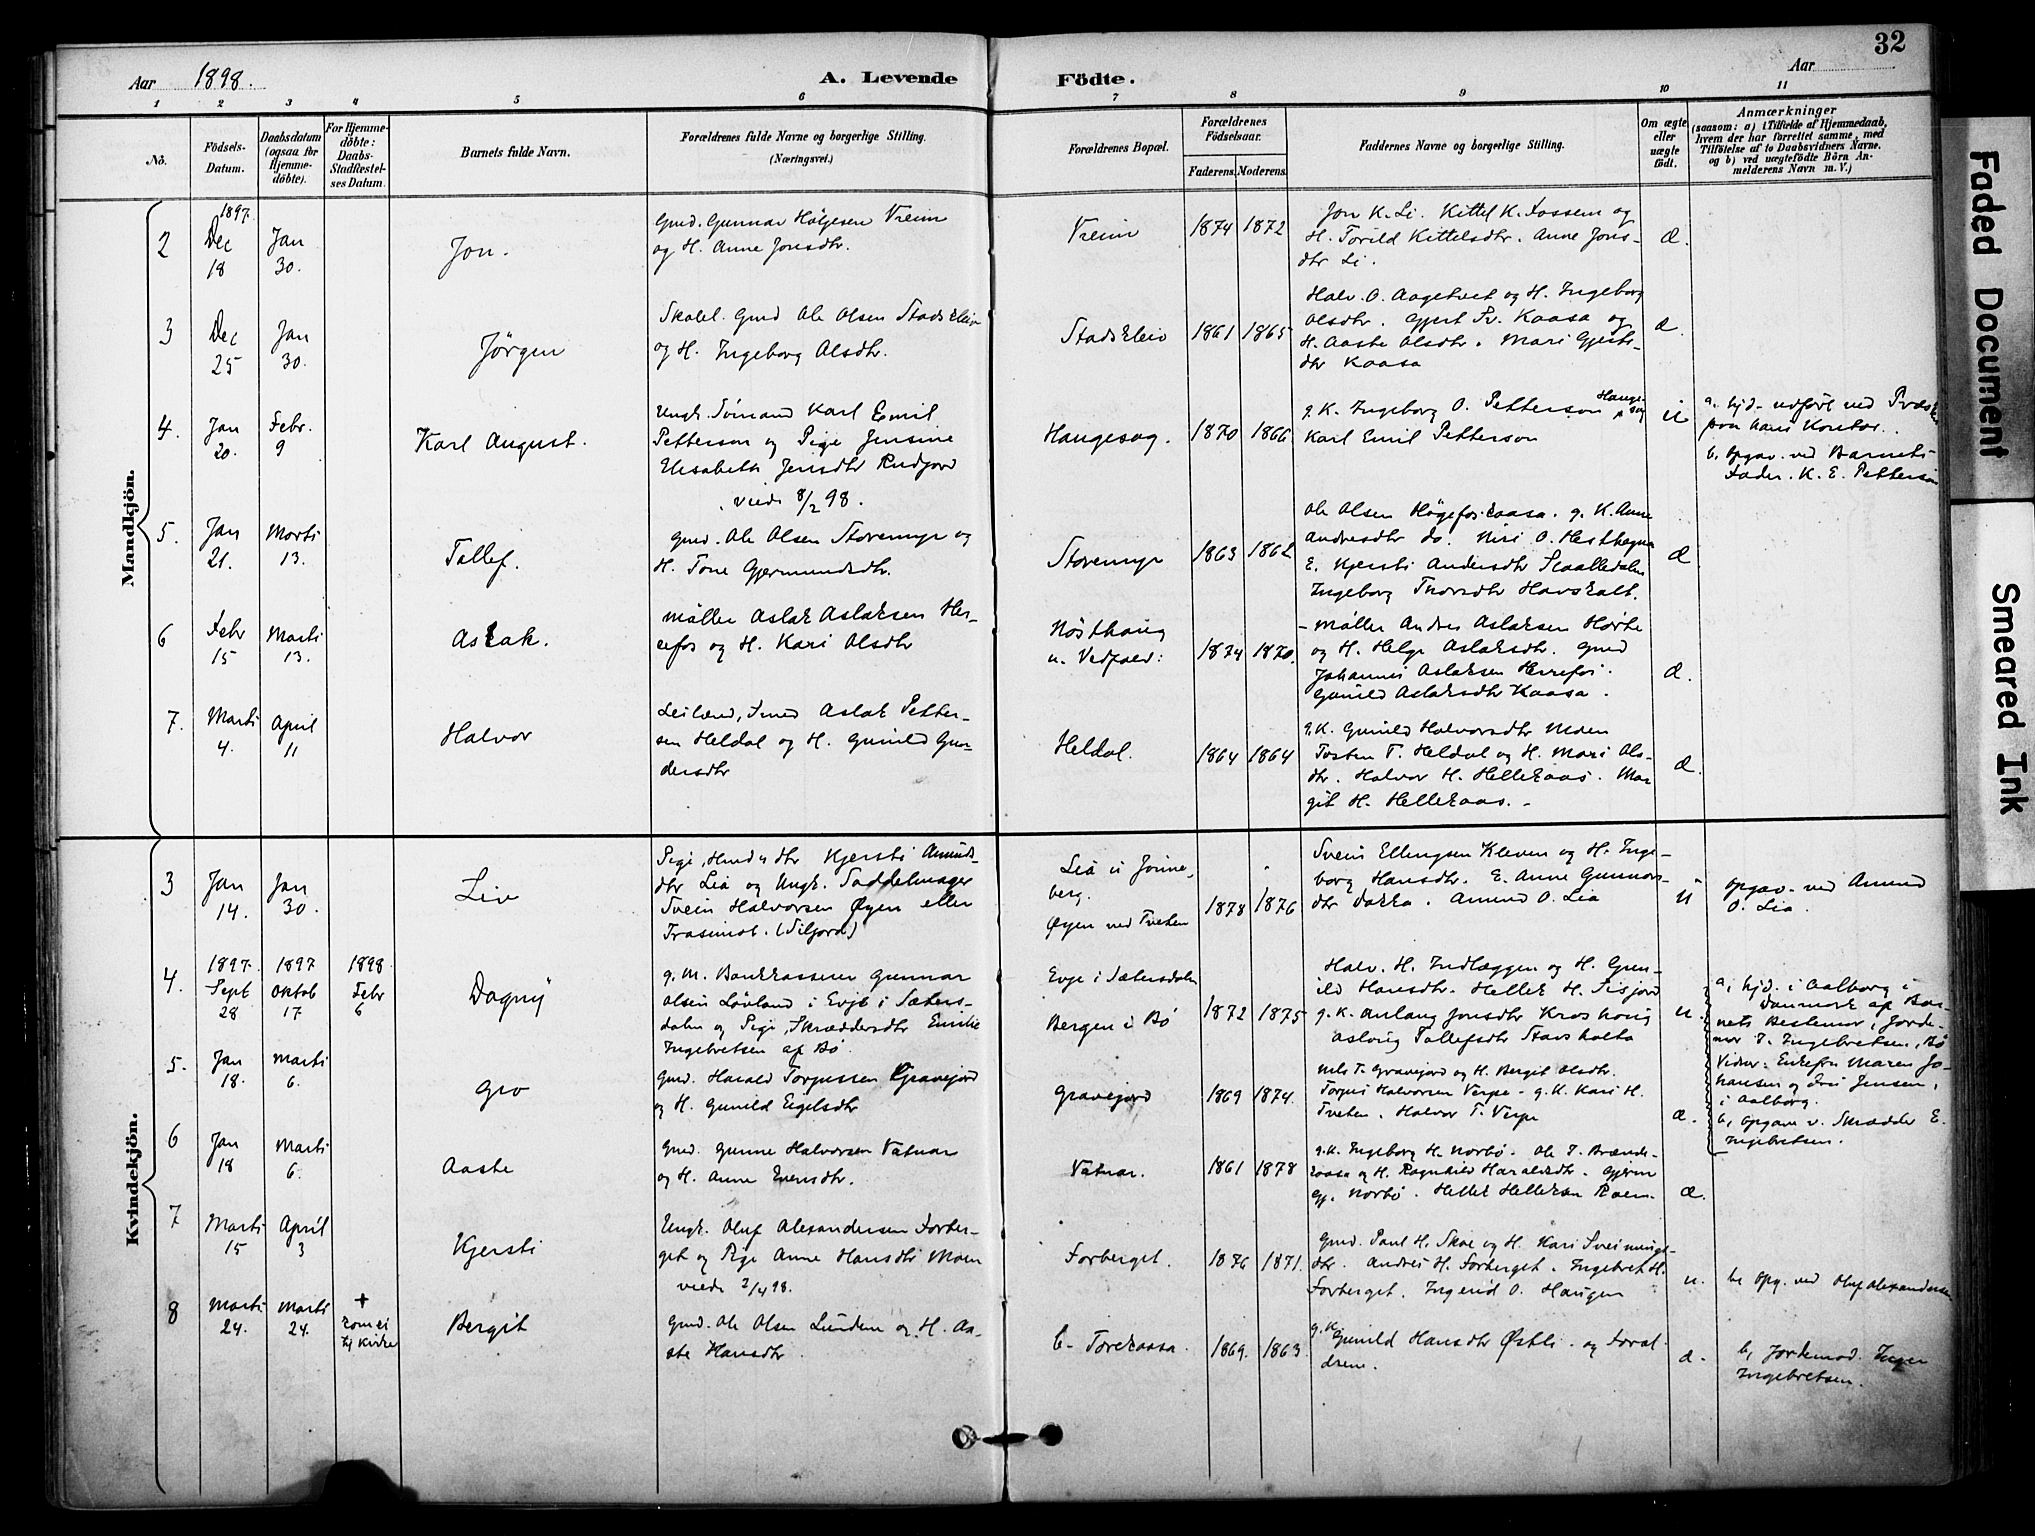 32
Aar 1898.
A. Levende Födte.
Aar
1 2 3 4 5 6 7 8 9 10 11
Nö.
Födsels-Datum.
Daabsdatum (ogsaa for Hjemmedöbte).
For Hjemmedöbte: Daabs-Stadfestelses Datum.
Barnets fulde Navn.
Forældrenes fulde Navne og borgerlige Stilling.
(Næringsvei.)
Forældrenes Bopæl.
Forældrenes Födselsaar.
Faderens. Moderens.
Faddernes Navne og borgerlige Stilling.
Om ægte eller uægte födt.
Anmærkninger
(saasom: a) i Tilfælde af Hjemmedaab, hvem der har forrettet samme, med Tilföielse af to Daabsvidners Navne. og b) ved uægtefödte Börn Anmelderens Navn m. V.)
Mandkjön.
2
1897.
Dec 18
Jan 30.
Jon.
Gmd. Gunnar Halgesen Vreim
og H. Anne Jonsdtr.
Vreim
1874 1872
Jon K. Li. Kittel K. Fossem og
H. Torild Kittelsdtr. Anne Jons-
dtr Li.
æ.
3
Dec 25
Jan 30.
Jörgen
Skolel. Gmd Ole Olsen Stadskleiv
og H. Ingeborg Olsdtr.
Stadskleiv
1861 1865
Halv. O. Aagetveit og H. Ingeborg
Olsdtr. Gjert Kaasa og
H. Aaste Olsdtr. Mari Gjerts-
dtr Kaasa
æ.
4.
Jan 20.
Febr. 9
Karl August.
Ungk. Sömand Karl Emil
Petterson og Pige Jensine
Elisabeth Jensdtr Rudfjord
viede 8/2 98.
Haugesag.
1870 1866
g. K. Ingeborg O. Petterson Haugesag
Karl Emil Petterson
ü
a. hjd. udfört ved Præsten
paa hans Kontor.
b. opgav. ved Barnets
Fader. K. E. Petterson
5.
Jan 21.
Marts 13.
Tallef.
Gmd. Ole Olsen Storemyr og
H. Tone Gjermundsdtr.
Storemyr
1863 1862
Ole Olsen Högefoskaasa. g. K. Anne
Andersdtr do. Niri O. Hesthagna
E. Kjersti Andersdtr
Ingeborg Thorsdtr Havskalt.
æ
6
Febr 15
Marts 13.
Aslak.
Möller Aslak Aslaksen Her-
refos og H. Kari Olsdtr
Nösthaug
u. Vedfald:
1874 1870.
- Möller Andres Aslaksen Hörte
og H. Helge Aslaksdtr. Gmd
Johannes Aslaksen Herrefos.
Gunild Aslaksdtr Kaasa.
æ.
7.
Marts 4.
April 11
Halvor
Leilænd, Smed Aslak Petter-
sen Heldal og H. Gunild Gun-
dersdtr
Heldal.
1864 1864
g. K. Gunild Halvorsdtr Moen
Tosten T. Heldal og H. Mari Ols-
dtr. Halvor H. Hellekaas. Mar
git H. Hellekaas. -
æ.
Kvindekjön.
3
Jan 14.
Jan 30.
Liv
Pige, Husmdtr Kjersti Amunds-
dtr Lia og Ungk. Saddelmager
Svein Halvorsen Øyen eller
Trasimot. (Siljord)
Lia u Jönne-
berg.
Øyen ved Tveten
1878 1876
Svein Ellingsen Kleven og H. Inge-
borg Hansdtr. E. Anne Gunnars-
dtr Dokka. Amund O. Lia
ü
opgav. ved Amund
O. Lia.
4.
1897. Sept 28
1897 Oktob 17
1898 Febr 6
Dagny
g. M. Bankkasserer Gunnar
Olsen Lövland i Evje i Sæters-
dalen og Pige, Skræddersdtr Emilie
Ingebretsen af Bö.
Evje i Sætersdalen
Bergen i Bö
1872 1875
Halv. H. Indlæggen og H. Gun-
ild Hansdtr. Hellek H. Sisjord
g. K. Anlaug Jonsdtr Kroshaug
Aslaug Tallefsdtr Stavsholta
u.
a, hjd. i Aalborg i
Danmark af Bar-
nets Bestemor, Jorde-
mor I. Ingebretsen, Bö
Vidner: Enkefru Maren Jo-
hansen og Fru Jensen,
i Aalborg.
b, opgave v. Skrædder E.
Ingebretsen.
5.
Jan 18.
Marts 6.
Gro
Gmd. Harald Torgussen Gravejord
og H. Gunild Eigelsdtr
Gravejord
1869 1874.
Nils T. Gravejord og H. Bergit Olsdtr.
Torjus Halvorsen Verpe - g. K. Kari H.
Tveten. Halvor T. Verpe
æ.
6
Jan 18
Marts 6.
Aaste
Gmd. Gunne Halvorsen Vatnar
og H. Anne Evensdtr.
Vatnar.
1861 1878
g. K. Ingeborg H. Norbö. Ole I. Brænde-
kaasa og H. Ragnhild Haraldsdtr. Gjerm
Gj. Norbö. Hellek Helleksen Roen.
æ.
7
Marts 15
April 3
Kjersti
Ungk. Oluf Alexandersen Forber-
get og Pige Anne Hansdtr Moen
viede 2/4 98.
Forberget.
1876 1871.
Gmd. Paul H. Skoe og H. Kari Sveinungs-
dtr. Andres H. Forberget. Ingebret H.
Forberget. Ingerid O. Haugen
u.
b, opg. ved Oluf Alexandersen
8
Marts 24.
Marts 24.
+
kom ei
til Kirke
Bergit
Gmd. Ole Olsen Lunden og H. Aa-
ste Hansdtr.
E- Torekaasa.
1869. 1863.
g. K. Gunild Hansdtr Østli. og Foræl-
drene.
æ.
b, Jordemod. Inger
Ingebretsen.
Faded Document
Smeared Ink